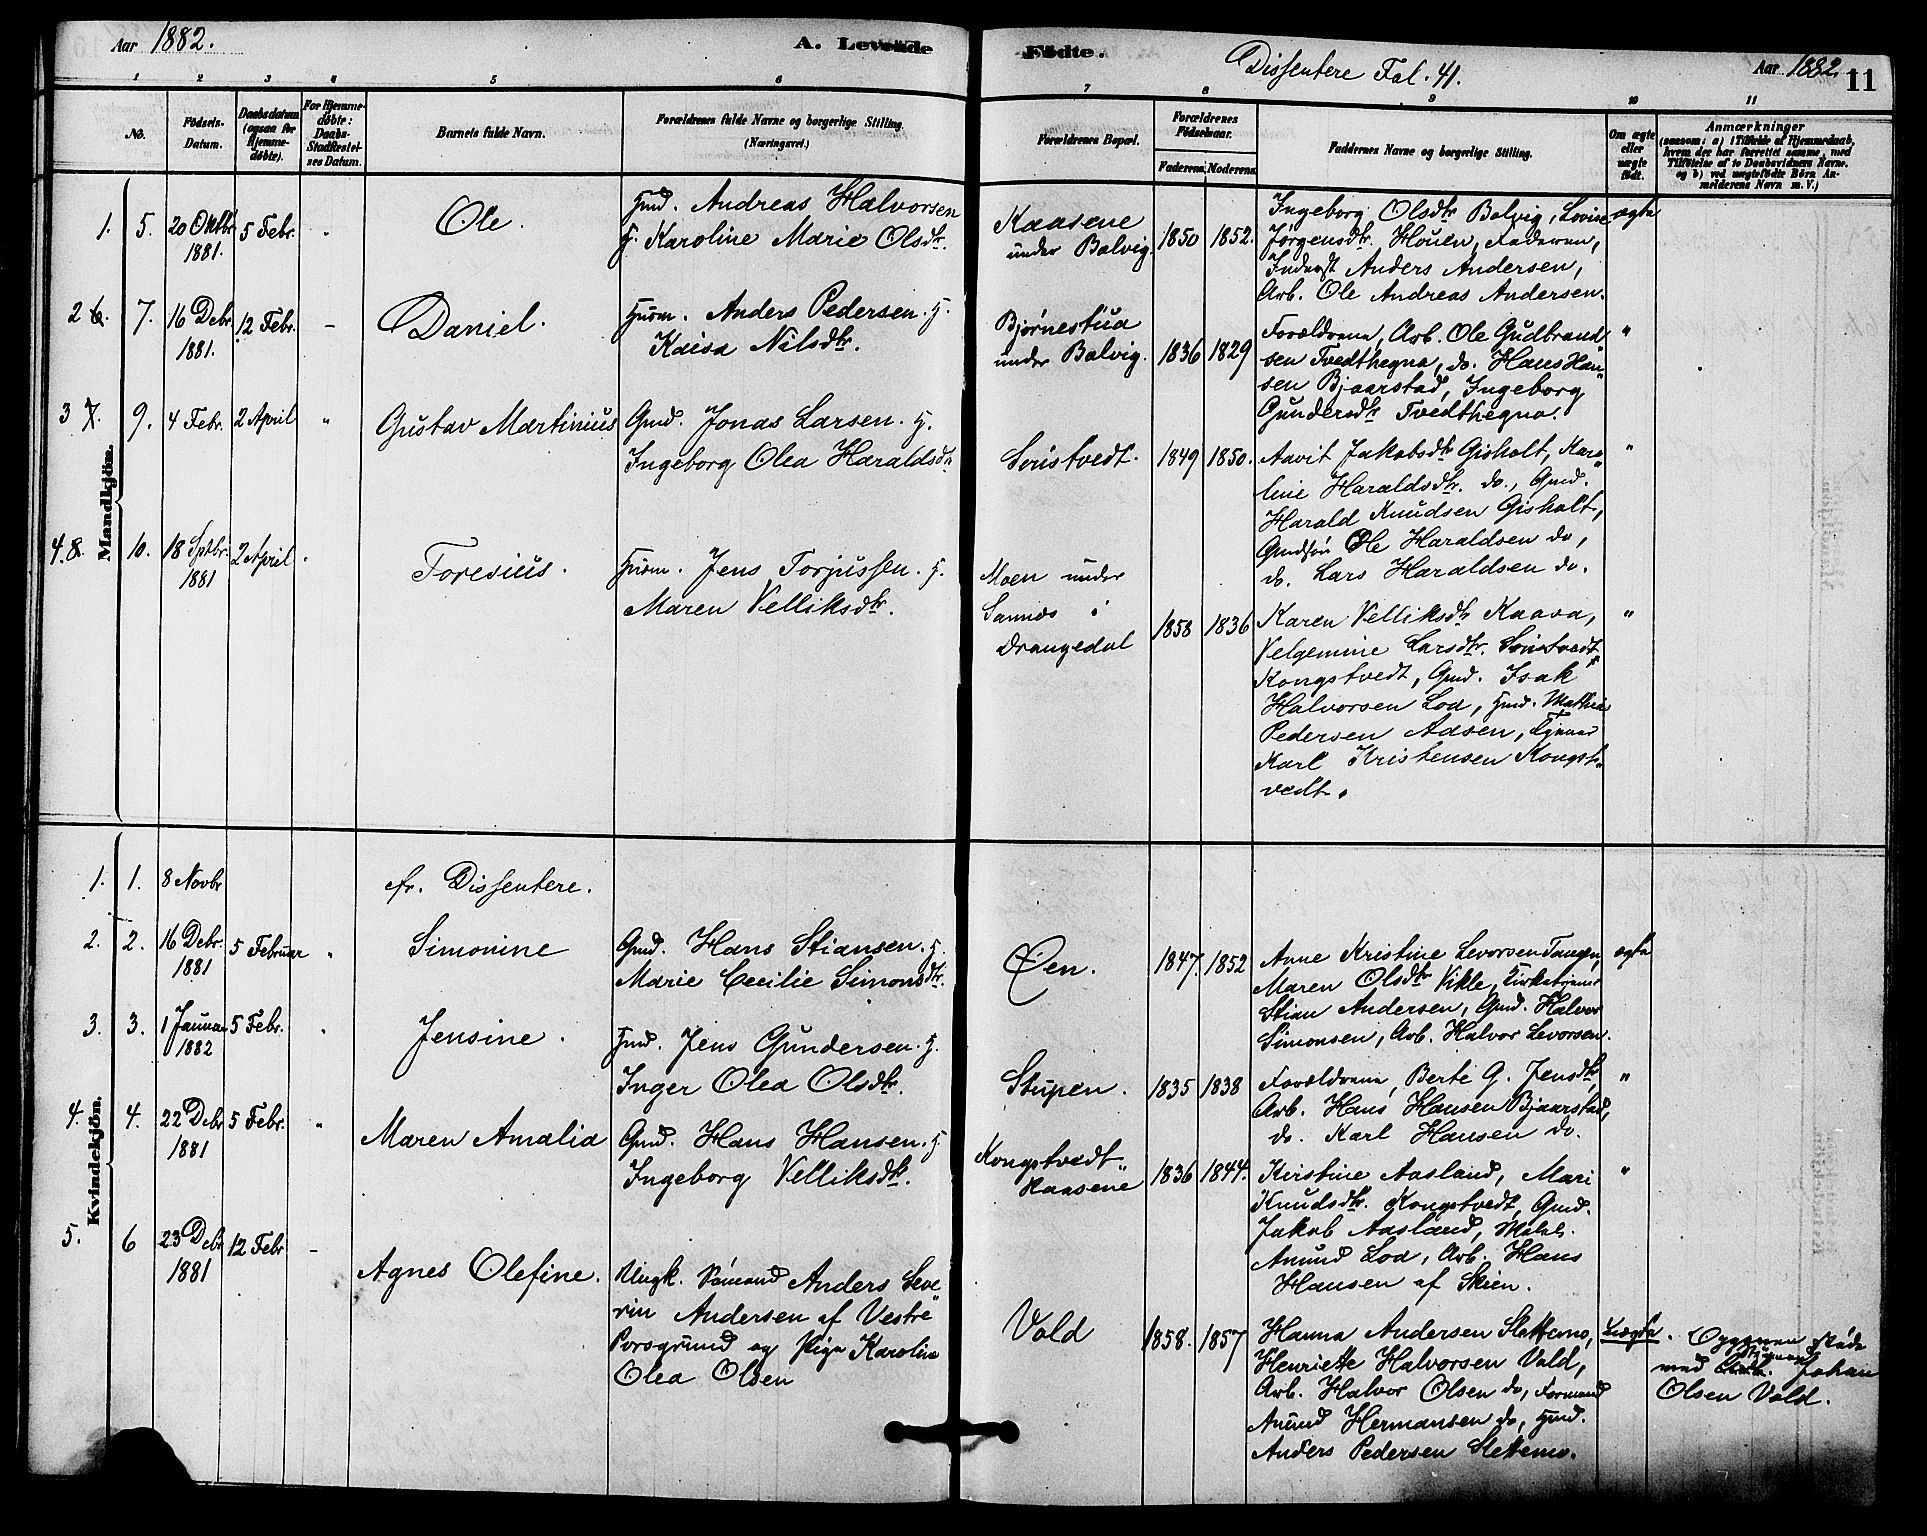 Aar 1882.
A. Levende Fødte.
Dissentere Fol. 41.
Aar 1882.
11
1 2 3 4 5 6 7 8 9 10 11
No.
Fødsels-
Datum.
Daabsdatum
(ogsaa for
Hjemme-
døbte).
For Hjemme-
døbte:
Daabs-
Stadfæstel-
ses Datum.
Barnets fulde Navn.
Forældrenes fulde Navne og borgerlige Stilling.
(Næringsvei.)
Forældrenes Bopæl.
Forældrenes
Fødselsaar.
Faderens. Moderens.
Faddernes Navne og borgerlige Stilling.
Om ægte
eller
uægte
født.
Anmærkninger
(saasom: a) i Tilfælde af Hjemmedaab,
hvem der har forrettet samme, med
Tilføielse af to Daabsvidners Navne.
og b) ved uægtefødte Børn An-
melderens Navn m. V.)
Mandkjøn.
1. 5. 20 Oktbr.
1881.
5 Febr. "
Ole.
Gmd. Andreas Halvorsen
H. Karoline Marie Olsdtr.
Kaasene
under Bolvig.
1850 1852.
Ingeborg Olsdtr Bolvig, Lovise
Jørgensdtr. Houen, Faderen,
Inderst Anders Andersen,
Arb. Ole Andreas Andersen.
ægte
2 6. 7. 16 Debr.
1881.
12 Febr. -
Daniel.
Husm. Anders Pedersen. H.
Kaisa Nilsdtr.
Bjørnestua
under Bolvig.
1836 1829
Forældrene, Arb. Ole Gudbrand
sen Tvedthegna, do. Hans Han
sen Bjaarstad, Ingeborg
Gundersdtr Tvedthegna.
"
3 7. 9. 4 Febr. 2 April "
Gustav Martinius
Gmd. Jonas Larsen. H.
Ingeborg Olea Haraldsdtr
Sønstvedt.
1849 1850.
Aavit Jakobsdtr Gisholt, Karo
line Haraldsdtr. do., Gmd.
Harald Knudsen Gisholt,
Gmdsøn Ole Haraldsen do,
do. Lars Haraldsen do.
"
4. 8. 10. 18 Sptbr.
1881
2 April "
Toresius.
Husm. Jens Torjussen. H.
Maren Velliksdtr.
Moen under
Sannes i
Drangedal
1858 1836
Karen Velliksdtr Kaasa,
Velgemine Larsdtr. Sønstvedt
Kongstvedt, Gmd. Isak
Halvorsen Lod, Gmd. Mathias
Pedersen Aasen,
Karl Kristensen Kongst
vedt.
"
Kvindekjøn.
1. 1. 8 Novbr
cfr. Dissentere.
2. 2. 16 Debr.
1881
5 Februar "
Simonine
Gmd. Hans Stiansen. H.
Marie Cecilie Simonsdtr.
Øen.
1847. 1852
Anne Kristine Levorsen Tangen,
Maren Olsdtr Vikle,
Stian Andersen, Gmd. Halvor
Simonsen, Arb. Halvor Levorsen.
ægte
3. 3. 1 Januar
1882
5 Febr. "
Jensine.
Gmd. Jens Gundersen. H.
Inger Olea Olsdtr.
Stupen.
1835 1838
Forældrene, Berte G. Jensdtr,
Arb. Hans Hansen Bjaarstad,
do. Karl Hansen do.
"
4. 4. 22 Debr
1881
5 Febr. "
Maren Amalia
Gmd. Hans Hansen. H
Ingeborg Velliksdtr.
Kongstvedt
Kaasene
1836 1844.
Kristine Aasland, Mari
Knudsdtr. Kongstvedt, Gmd.
Jakob Aasland,
Anund Lod, Arb. Hans
Hansen af Skien.
"
5. 6 23 Debr
1881
12 Febr. -
Agnes Olefine.
Ungk. Sømand Anders Seve
rin Andersen af Vestre
Porsgrund og Pige Karoline
Olea Olsen
Vold
1858. 1857
Hanna Andersen Slettemo,
Henriette Halvorsen Vold,
Arb. Halvor Olsen do, Formand
Anund Hermansen do, Gmd.
Anders Pedersen Slettemo.
Uægte.
Opgiven
med Johan
Olsen Vold.